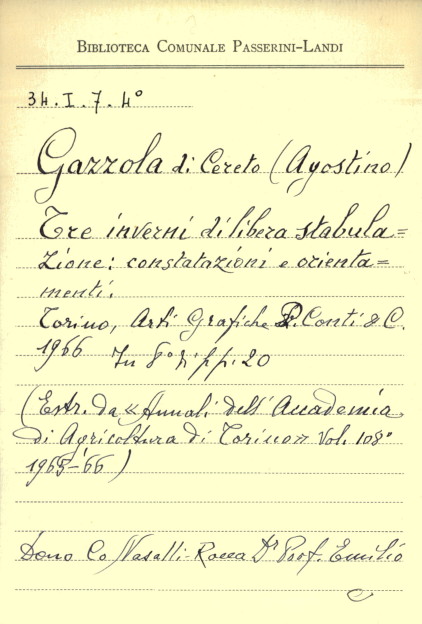 BIBLIOTECA COMUNALE PASSERINI-LANDI
34. I. 7. 4°
Gazzola di Cereto (Agostino)
Tre inverni di libera stabula=
zione: constatazioni e orienta=
menti.
Torino, Arti Grafiche P. Conti & C.
1966 In 8° di pp. 20
(Estr. da «Annali dell'Accademia
di Agricoltura di Torino» Vol. 108°
1965-'66)
Dono Co Nasalli-Rocca Dr Prof. Emilio